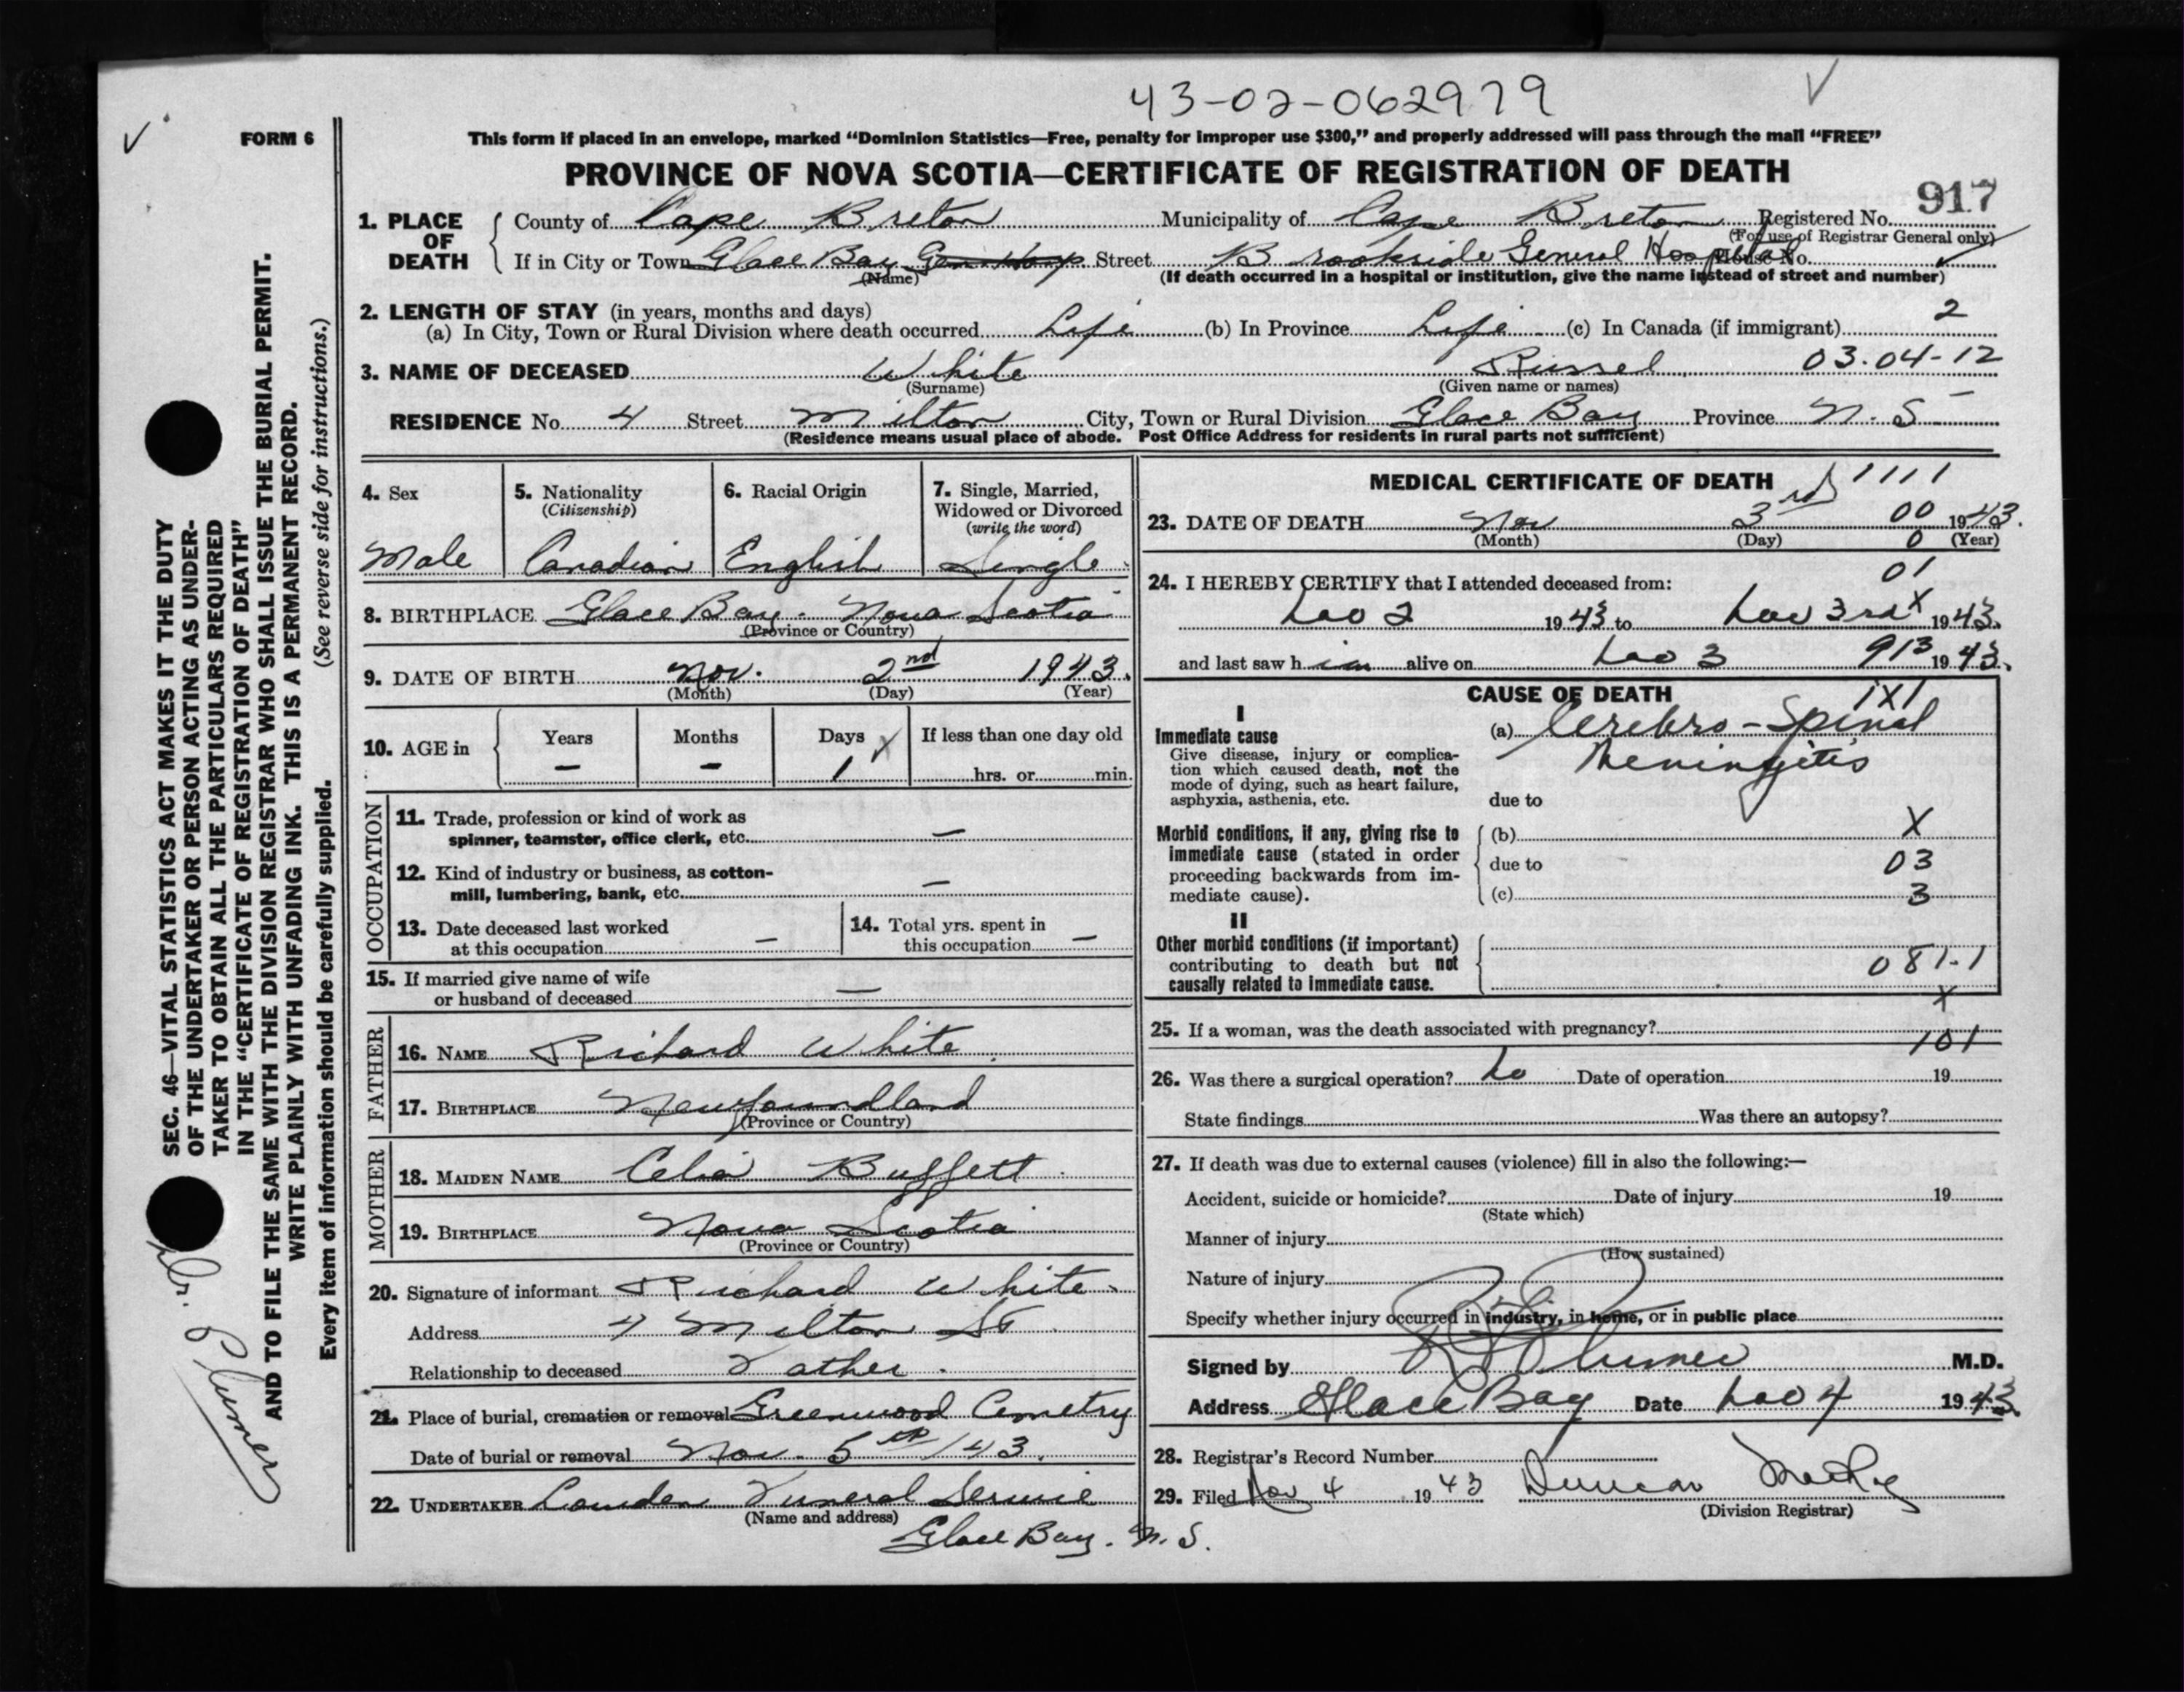 43-02-062979
FORM 6
This form if placed in an envelope, marked “Dominion Statistics—Free, penalty for improper use $300,” and properly addressed will pass through the mail “FREE”
PROVINCE OF NOVA SCOTIA—CERTIFICATE OF REGISTRATION OF DEATH
917
1. PLACE OF DEATH County of Cape Breton Municipality of Cape Breton Registered No.
(For use of Registrar General only)
If in City or Town Glace Bay Gen Hosp Street Brookside General Hospital House No.
(Name) (If death occurred in a hospital or institution, give the name instead of street and number)
2. LENGTH OF STAY (in years, months and days)
(a) In City, Town or Rural Division where death occurred Life (b) In Province Life (c) In Canada (if immigrant) 2
3. NAME OF DECEASED White Russel 03.04-12
(Surname) (Given name or names)
RESIDENCE No. 4 Street Milton City, Town or Rural Division Glace Bay Province N.S
(Residence means usual place of abode. Post Office Address for residents in rural parts not sufficient)
4. Sex
Male
5. Nationality
(Citizenship)
Canadian
6. Racial Origin
English
7. Single, Married,
Widowed or Divorced
(write the word)
Single
8. BIRTHPLACE Glace Bay. Nova Scotia
(Province or Country)
9. DATE OF BIRTH Nov. 2nd 1943.
(Month) (Day) (Year)
10. AGE in Years Months Days X If less than one day old
— — 1 hrs. or min.
OCCUPATION
11. Trade, profession or kind of work as
spinner, teamster, office clerk, etc. —
12. Kind of industry or business, as cotton-
mill, lumbering, bank, etc. —
13. Date deceased last worked
at this occupation —
14. Total yrs. spent in
this occupation —
15. If married give name of wife
or husband of deceased —
FATHER
16. NAME Richard White
17. BIRTHPLACE Newfoundland
(Province or Country)
MOTHER
18. MAIDEN NAME Celia Buffett
19. BIRTHPLACE Nova Scotia
(Province or Country)
20. Signature of informant Richard White
Address 4 Milton St
Relationship to deceased Father.
21. Place of burial, cremation or removal Greenwood Cemetry
Date of burial or removal Nov. 5th /43.
22. UNDERTAKER Funeral Service
(Name and address)
Glace Bay. N.S.
MEDICAL CERTIFICATE OF DEATH 1111
23. DATE OF DEATH Nov 3rd 00 1943.
(Month) (Day) 0 (Year)
01
24. I HEREBY CERTIFY that I attended deceased from:
Nov 2 1943 to Nov 3rd X 1943.
and last saw him alive on Nov 3 913 1943.
CAUSE OF DEATH 1X1
I
Immediate cause
Give disease, injury or complica-
tion which caused death, not the
mode of dying, such as heart failure,
asphyxia, asthenia, etc.
(a) Cerebro-Spinal
Meningitis
due to
Morbid conditions, if any, giving rise to
immediate cause (stated in order
proceeding backwards from im-
mediate cause).
(b) X
due to 03
(c) 3
II
Other morbid conditions (if important)
contributing to death but not
causally related to immediate cause.
081-1
X
25. If a woman, was the death associated with pregnancy?
101
26. Was there a surgical operation? No Date of operation 19
State findings Was there an autopsy?
27. If death was due to external causes (violence) fill in also the following:—
Accident, suicide or homicide? Date of injury 19
(State which)
Manner of injury
(How sustained)
Nature of injury
Specify whether injury occurred in industry, in home, or in public place
Signed by M.D.
Address Glace Bay Date Nov 4 1943.
28. Registrar's Record Number
29. Filed Nov 4 1943 Duncan
(Division Registrar)
SEC. 46—VITAL STATISTICS ACT MAKES IT THE DUTY
OF THE UNDERTAKER OR PERSON ACTING AS UNDER-
TAKER TO OBTAIN ALL THE PARTICULARS REQUIRED
IN THE “CERTIFICATE OF REGISTRATION OF DEATH”
AND TO FILE THE SAME WITH THE DIVISION REGISTRAR WHO SHALL ISSUE THE BURIAL PERMIT.
WRITE PLAINLY WITH UNFADING INK. THIS IS A PERMANENT RECORD.
Every item of information should be carefully supplied. (See reverse side for instructions.)